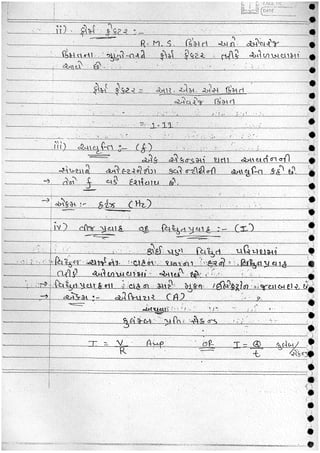 ii) ફોર્મ ફેક્ટર :-
R.M.S. કિંમત અને એવરેજ
કિંમતના ગુણોત્તરને ફોર્મ ફેક્ટર તરીકે ઓળખવામાં
આવે છે.
ફોર્મ ફેક્ટર = આર. એમ. એસ કિંમત
એવરેજ કિંમત
= 1.11
iii) આવૃત્તિ :- (f)
એક સેકન્ડમાં થતા આવર્તનની
સંખ્યાને ઓલ્ટરનેટીંગ ક્વોન્ટીટીની આવૃત્તિ કહે છે
→ તેને f વડે દર્શાવાય છે.
→ એકમ :- હર્ટઝ (Hz)
iv) વીજ પ્રવાહ વિદ્યુતપ્રવાહ :- (I)
કોઈ પણ વિદ્યુત પરિપથમાં
વિદ્યુત ચાર્જના વહનના દરને વિદ્યુતપ્રવાહ
તરીકે ઓળખવામાં આવે છે.
→ વિદ્યુતપ્રવાહના વહન માટે મુક્ત ઈલેક્ટ્રોન જવાબદાર છે
→ એકમ :- એમ્પિયર (A)
અથવા
કુલંબ પ્રતિ સેકન્ડ
I = V/R Amp OR I = Q/t કુલંબ/સેકન્ડ